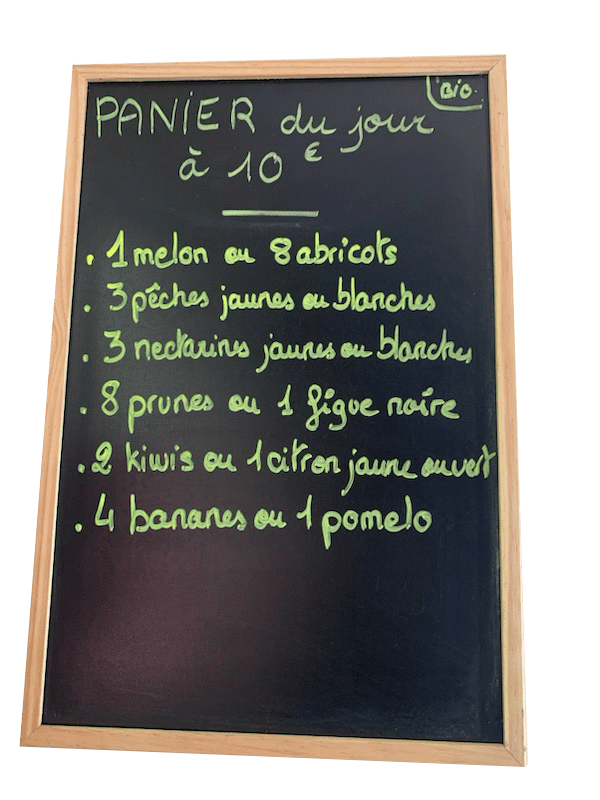 Bio
PANiER du jour
à 10 €
. 1 melon ou 8 abricots
. 3 pêches jaunes ou blanches
. 3 nectarines jaunes ou blanches
. 8 prunes ou 1 figue noire
. 2 kiwis ou 1 citron jaune ou vert
. 4 bananes ou 1 pomelo